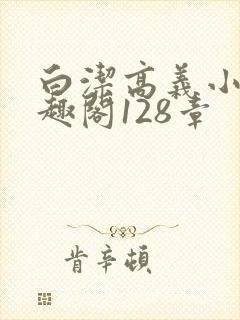 白潔高義小
趣閣128章
肯辛頓